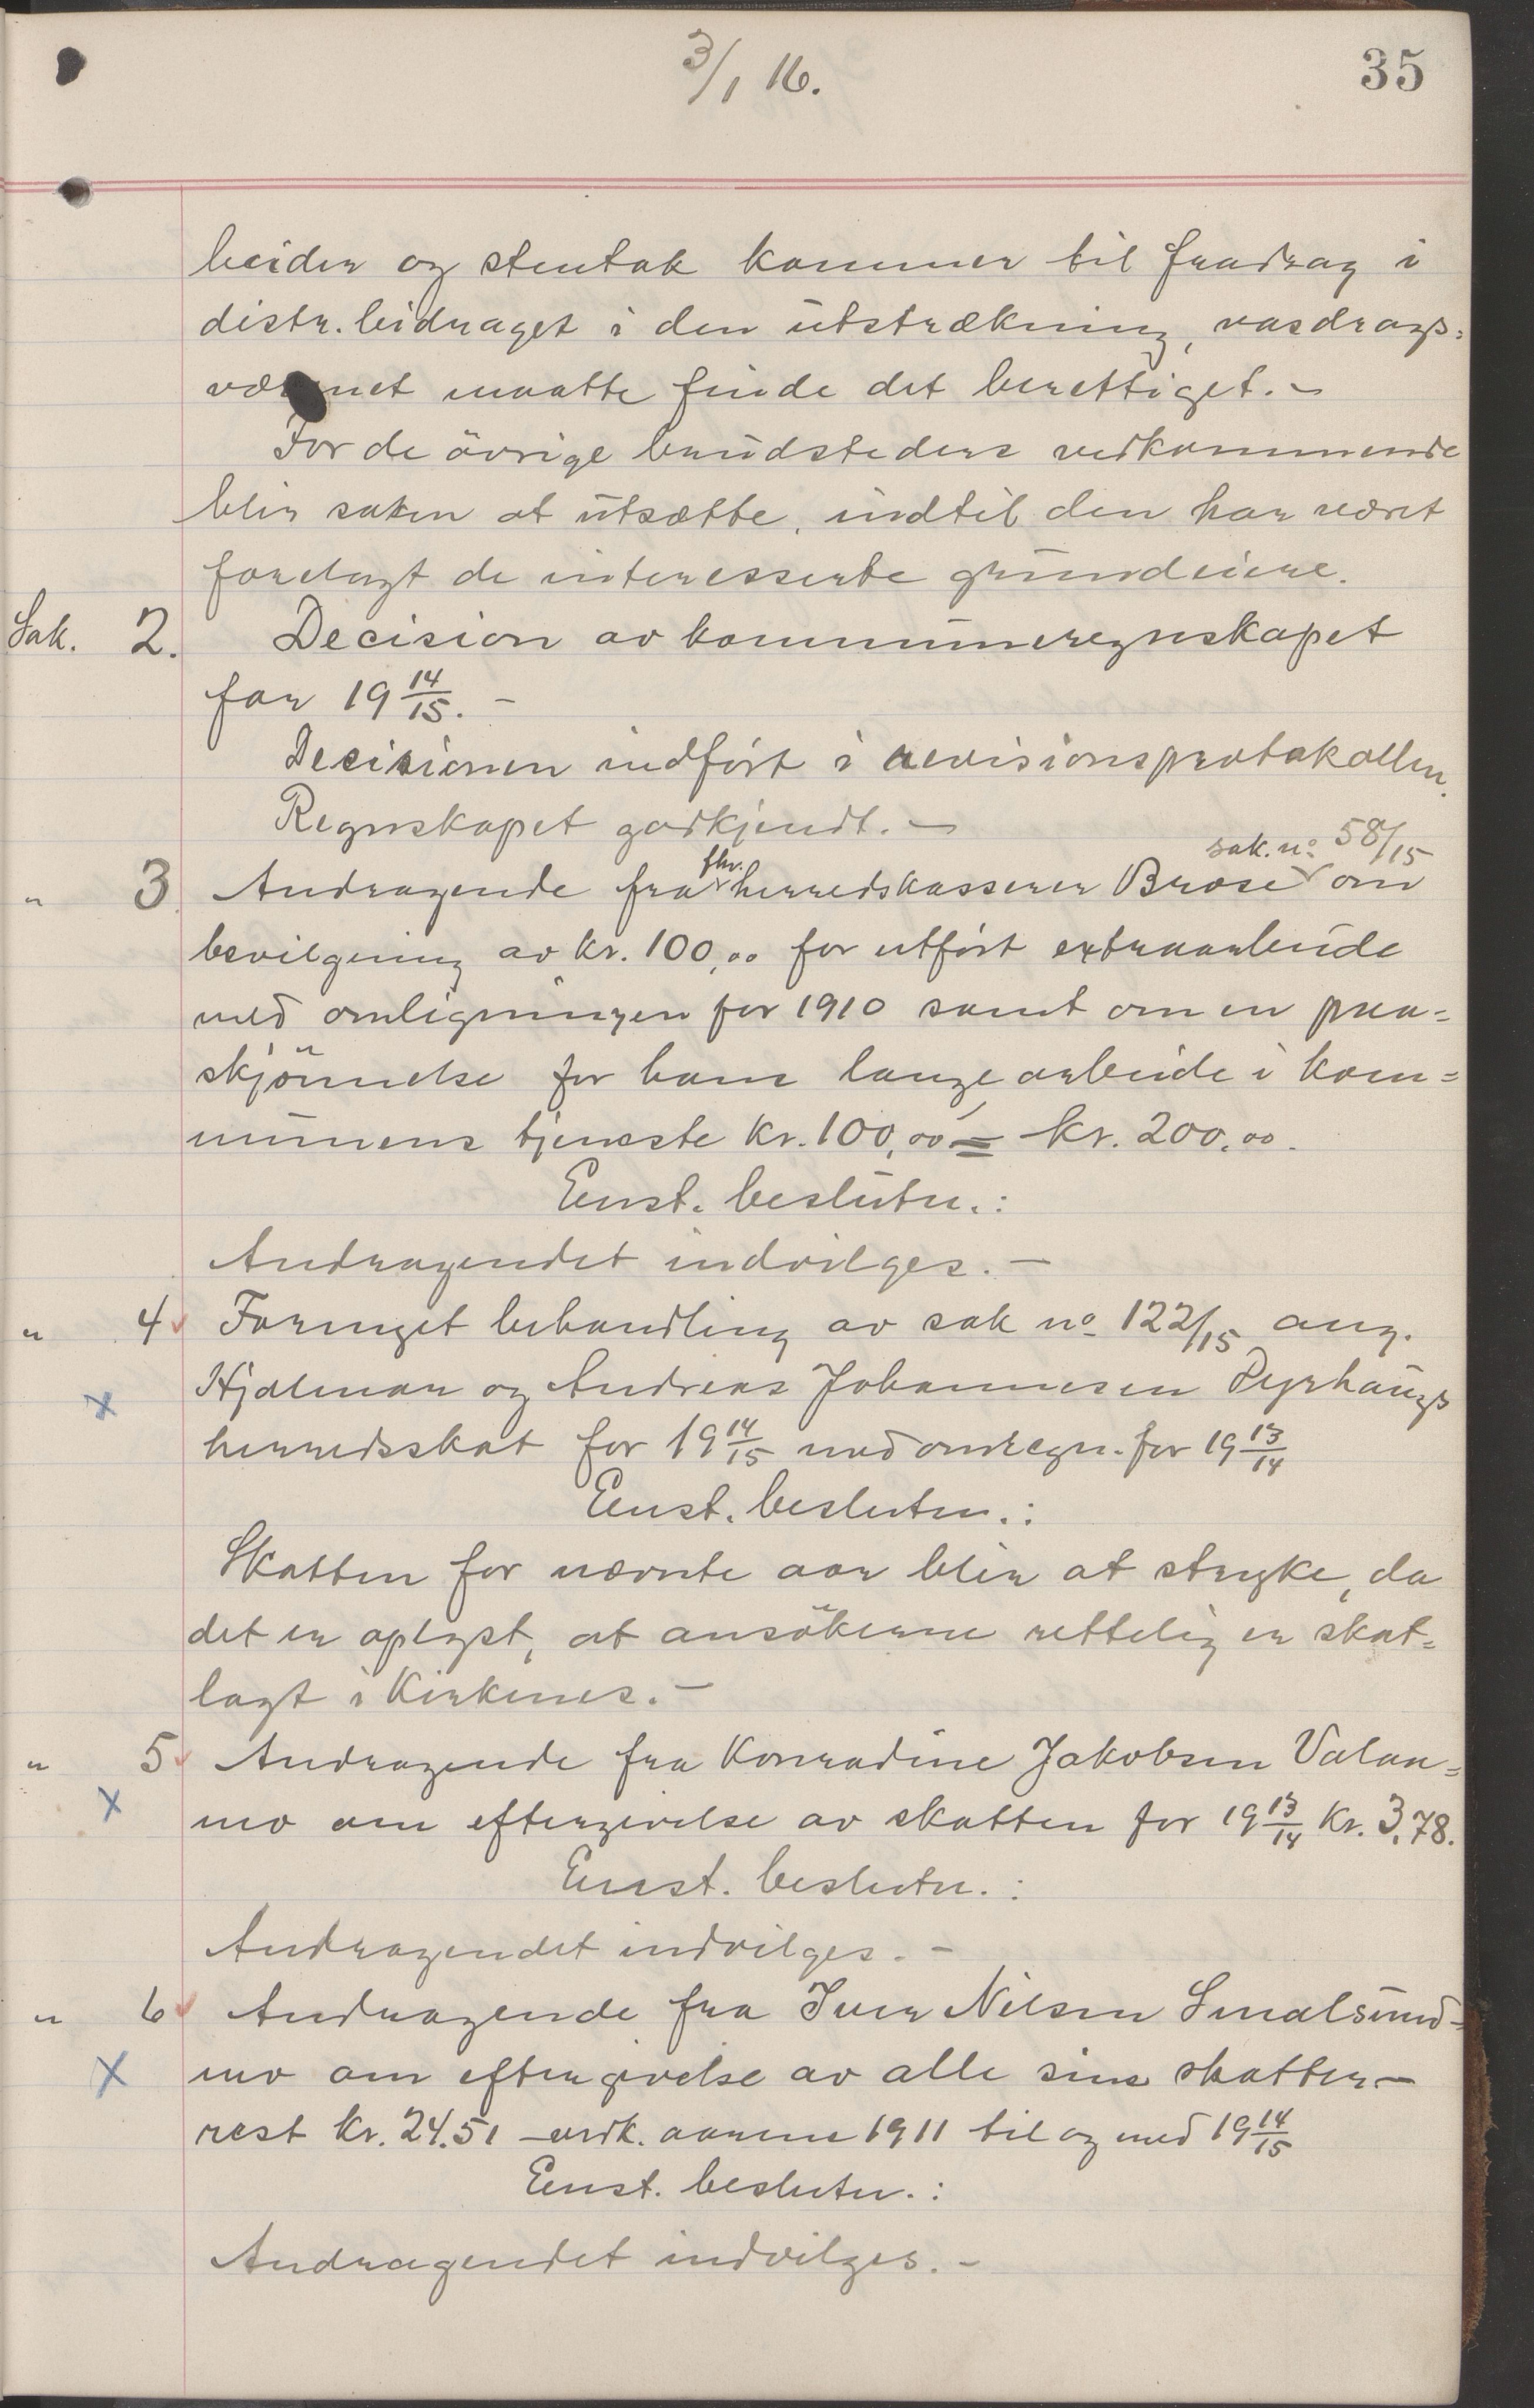 3/1 16.
35
beider og stentak kommer til fradrag i
distr. bidraget i den utstrækning, vasdrags=
væ net maatte finde det berettiget. -
For de övrige brudsteders vedkommende
blir saken at utsætte, indtil den har været
forelagt de interesserte grundeiere.
Sak. 2. Decision av kommuneregnskapet
for 19 14/15. -
Decisionen indfört i revisionsprotokollen.
Regnskapet godkjendt. -
sak. no 58/15
" 3. Andragende fra fhv. herredskasserer Brose om
bevilgning av kr. 100,00 for utfört extraarbeide
med omligningen for 1910 samt om en paa=
skjönnelse for hans lange arbeide i kom=
munens tjeneste kr. 100,00 = kr. 200,00.
Enst. beslutn.:
Andragendet indvilges. -
" 4 Fornyet behandling av sak no 122/15 ang.
x Hjalmar og Andreas Johannesen Dyrhaugs
herredsskat for 19 14/15 med omregn. for 19 13/14
Enst. beslutn.:
Skatten for nævnte aar blir at stryke, da
det er oplyst, at ansökerne rettelig er skat=
lagt i Kirkenes. -
" 5 Andragende fra Konradine Jakobsen Valan=
x mo om eftergivelse av skatten for 19 13/14 kr. 3,78.
Enst. beslutn.:
Andragendet indvilges. -
" 6 Andragende fra Iver Nilsen Smalsund-
x mo om eftergivelse av alle sine skatter -
rest kr. 24.51 - vedk. aarene 1911 til og med 19 14/15
Enst. beslutn.:
Andragendet indvilges. -